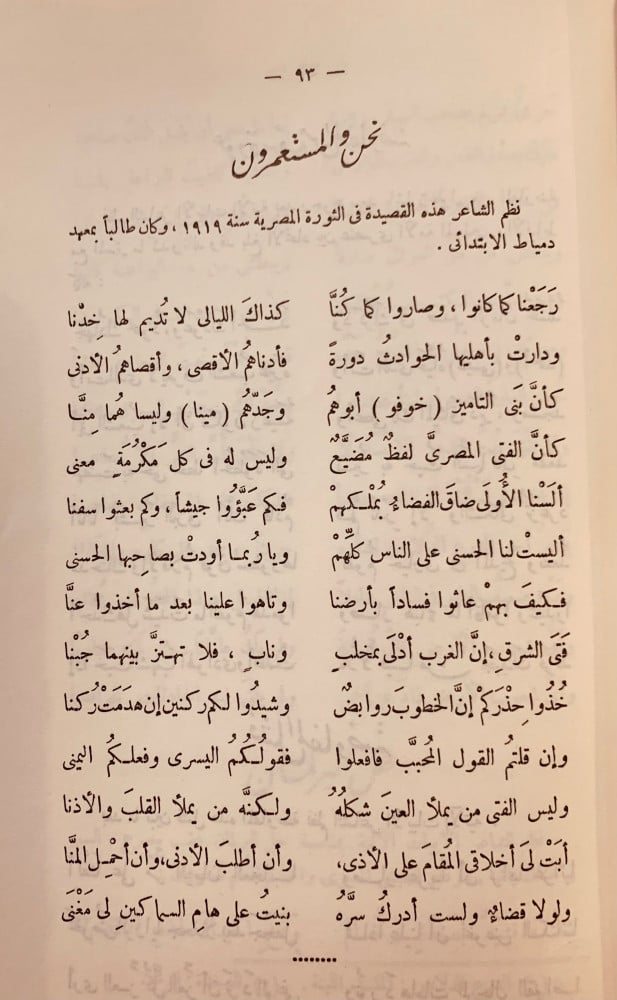 — ٩٣ —
نحن والمستعمرون
نظم الشاعر هذه القصيدة فى الثورة المصرية سنة ١٩١٩ ، وكان طالباً بمعهد
دمياط الابتدائى .
رَجَعْنا كما كانوا ، وصاروا كما كُنَّا كذاكَ الليالى لا تُديم لها خِدْنا
ودارتْ بأهليها الحوادثُ دورةً فأدناهمُ الأقصى ، وأقصاهمُ الأدنى
كأنَّ بَنى التاميز ( خوفو ) أبوهُم وجَدّهُم ( مينا ) وليسا هُما مِنَّا
كأنَّ الفتى المصرىَّ لفظٌ مُضَيَّعٌ وليس له فى كل مَكْرُمَةٍ معنى
ألَسْنا الأُولَى ضاقَ الفضاءُ بمُلْكهمْ فكم عَبَّؤُوا جيشاً ، وكم بعثوا سفنا
أليستْ لنا الحسنى على الناس كلِّهِمْ ويا رُبما أودتْ بصاحِبها الحسنى
فكيفَ بهمْ عاثوا فساداً بأرضنا وتاهوا علينا بعد ما أخذوا عنَّا
فَتَى الشرقِ ، إنَّ الغرب أدْلَى بمخلبٍ ونابٍ ، فلا تهتزَّ بينهما جُبْنا
خُذُوا حِذْرَكمْ إنَّ الخطوبَ روابضٌ وشيدُوا لكم ركنين إن هدَمَتْ رُكنا
وإن قلتمُ القول المُحبَّب فافعلوا فقولُكمُ اليسرى وفعلكُم اليمنى
وليس الفتى من يملأ العينَ شكلُهُ ولكنَّه من يملأ القلبَ والأذنا
أبَتْ لىَ أخلاقى المُقامَ على الأذى، وأن أطلبَ الأدنى، وأن أحْمِل المنَّا
ولولا قضاءٌ ولست أدركُ سرَّهُ بنيتُ على هامِ السماكينِ لى مَغْنَى